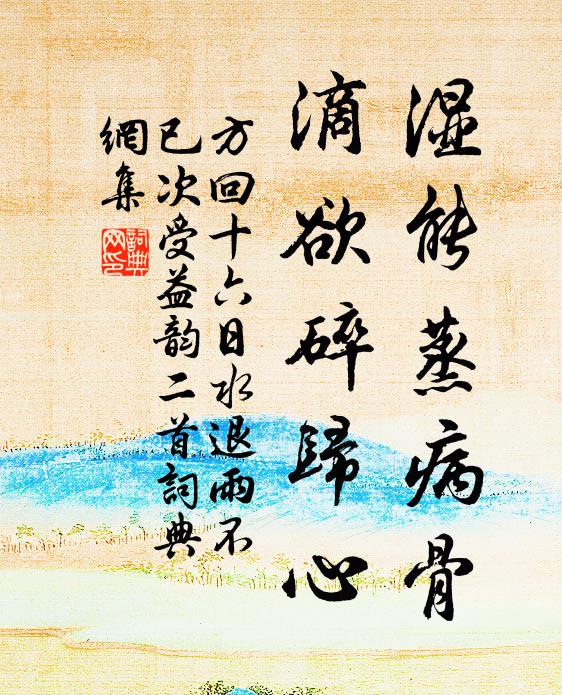 湿能蒸病骨
滴欲碎歸心
方回十六日水退雨不
已次受益韵二首詞典
網集
詞典
网印